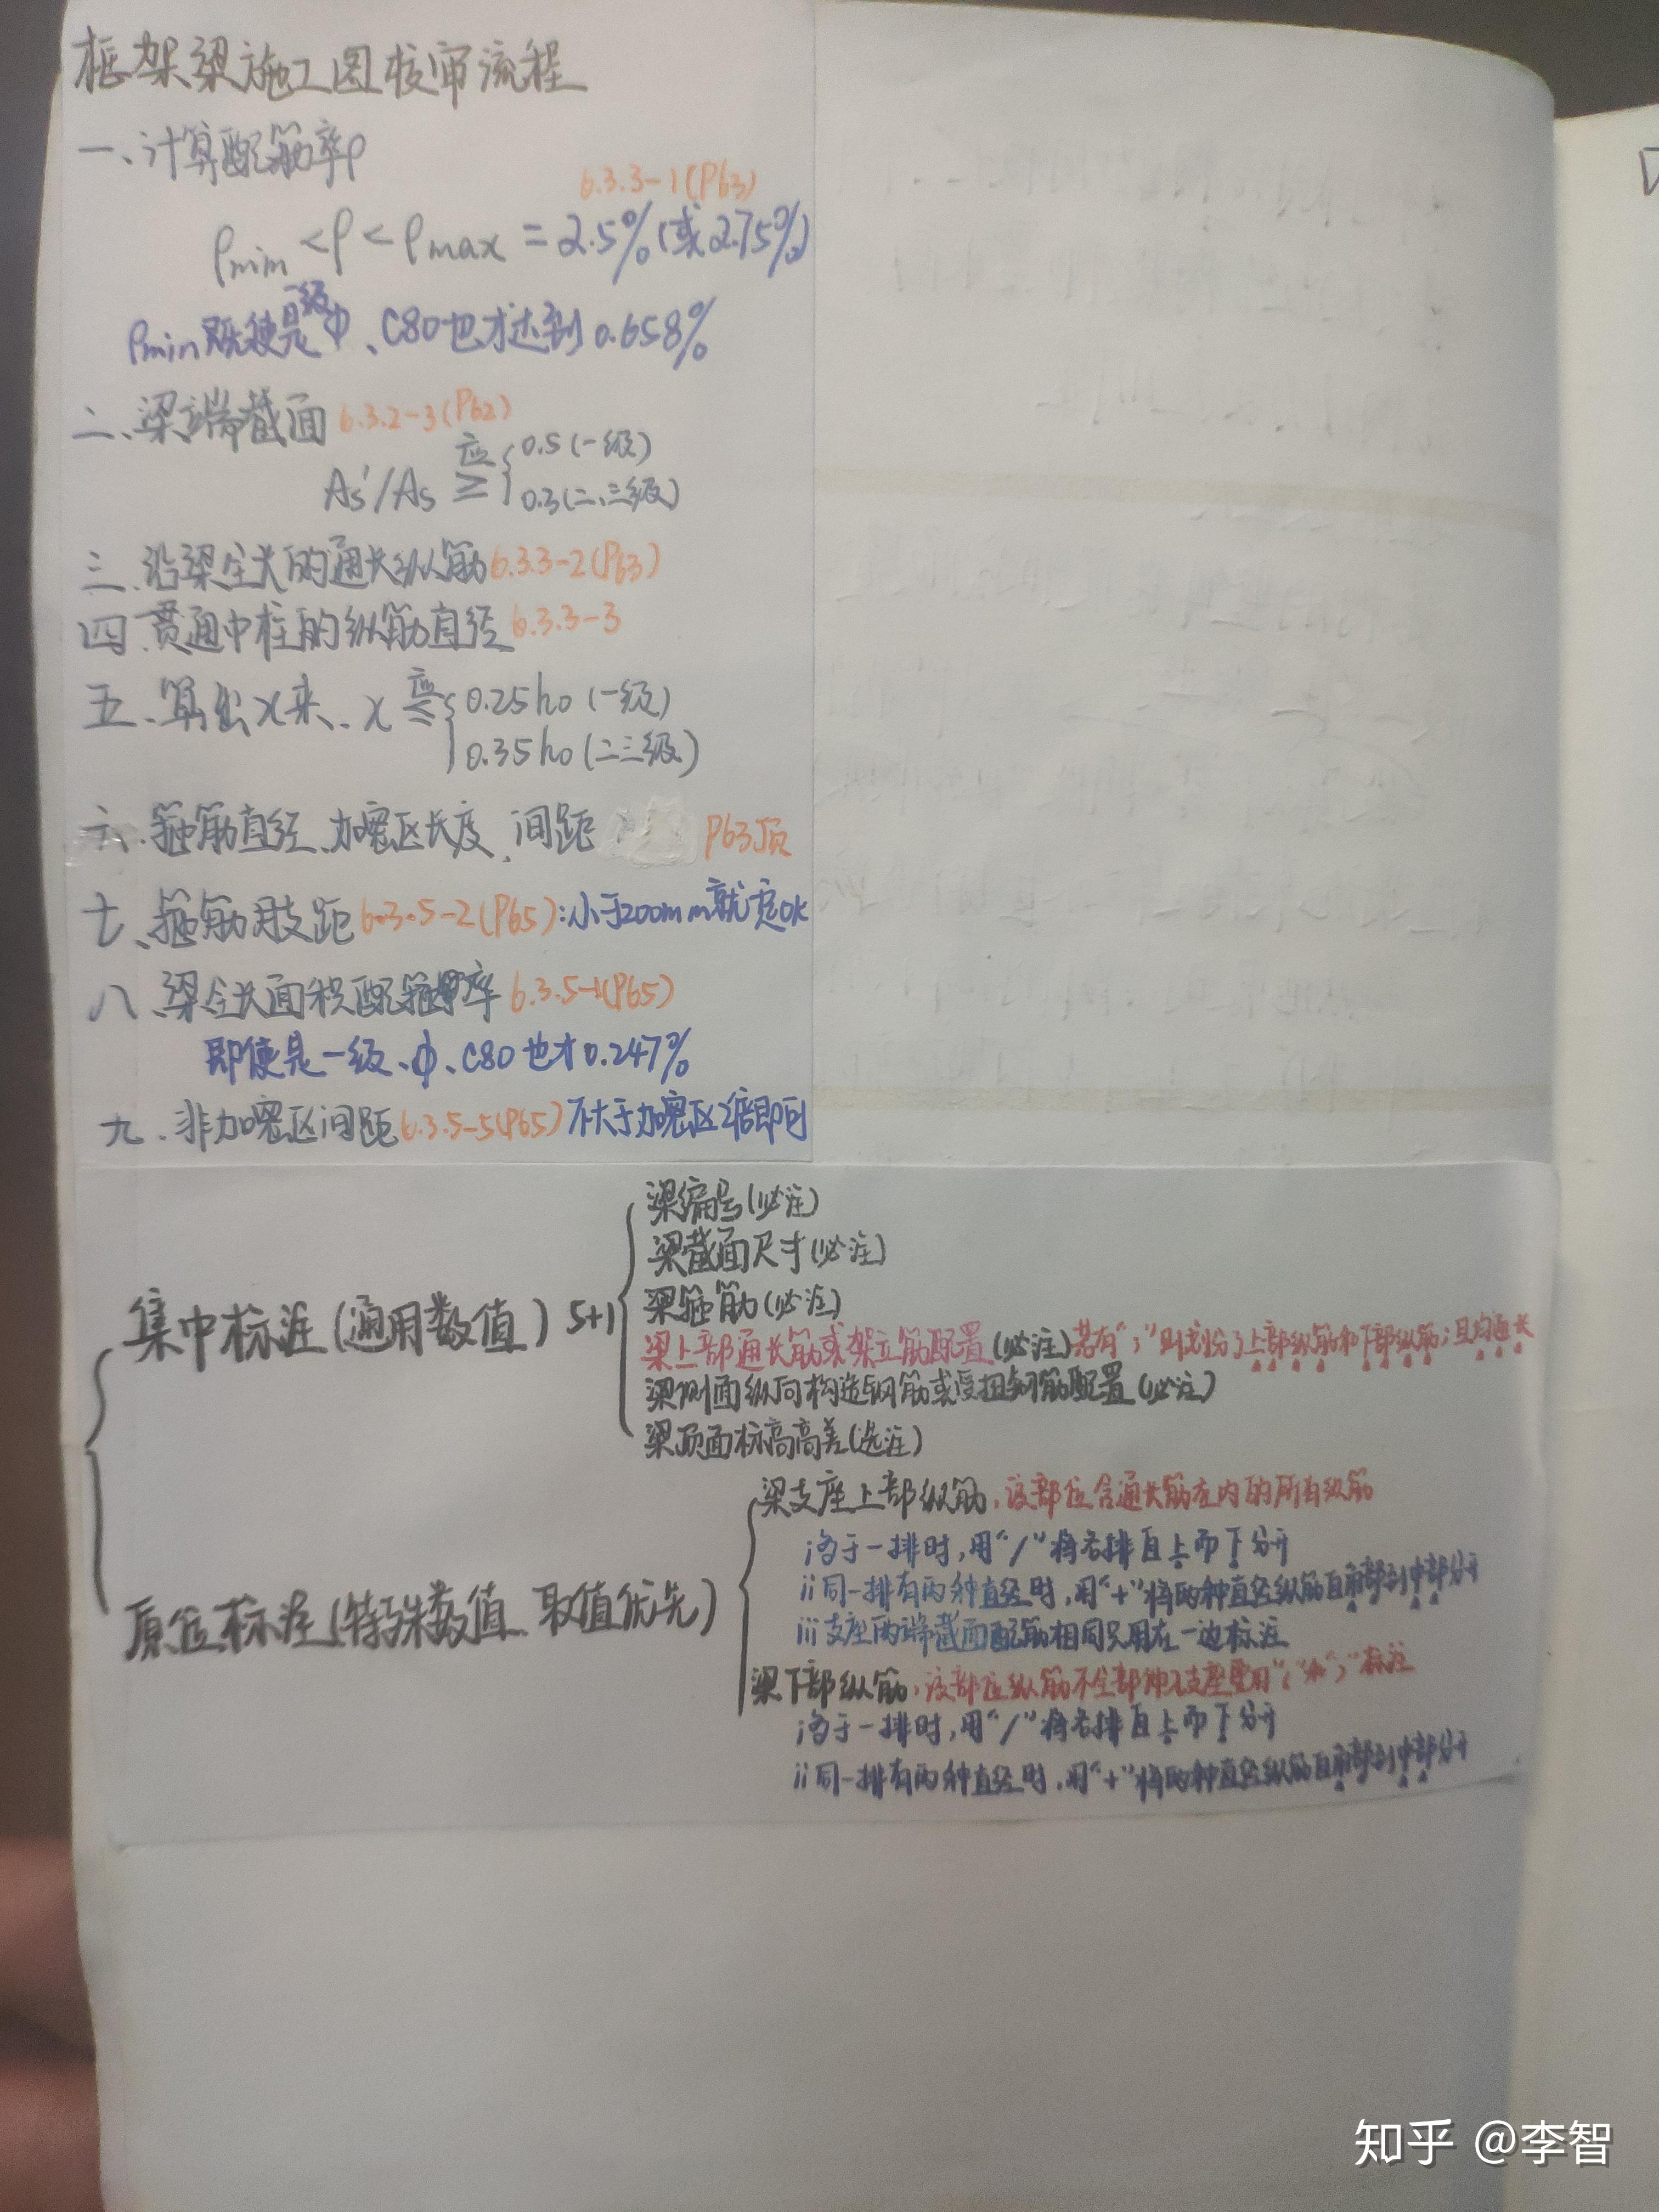 框架梁施工图校审流程
一、计算配筋率ρ
6.3.3-1(P63)
ρmin<ρ<ρmax=2.5%(或2.75%)
ρmin既使是一级、ф、C80也才达到0.658%
二、梁端截面 6.3.2-3(P62)
As'/As 应≥{0.5(一级)
0.3(二、三级)
三、沿梁全长的通长纵筋6.3.3-2(P63)
四、贯通中柱的纵筋直径6.3.3-3
五、算出x来、x应≤{0.25h0(一级)
0.35h0(二三级)
六、箍筋直径、加密区长度、间距 P63顶
七、箍筋肢距6.3.5-2(P65):小于200mm就定OK
八、梁全长面积配箍率 6.3.5-1(P65)
即使是一级、ф、C80也才0.247%
九、非加密区间距6.3.5-5(P65)不大于加密区2倍即可
梁编号(必注)
梁截面尺寸(必注)
集中标注(通用数值)5+1 梁箍筋(必注)
梁上部通长筋或架立筋配置(必注)若有“;”则划分了上部纵筋和下部纵筋;且均通长
梁侧面纵向构造钢筋或受扭钢筋配置(必注)
梁顶面标高高差(选注)
梁支座上部纵筋,该部位含通长筋在内的所有纵筋
i多于一排时,用“/”将各排自上而下分开
ii同一排有两种直径时,用“+”将两种直径纵筋自角部到中部分开
原位标注(特殊数值、取值优先)
iii支座两端截面配筋相同只用在一边标注
梁下部纵筋,该部位纵筋不全部伸入支座要用“(”和“)”标注
i多于一排时,用“/”将各排自上而下分开
ii同一排有两种直径时,用“+”将两种直径纵筋自角部到中部分开
知乎 @李智